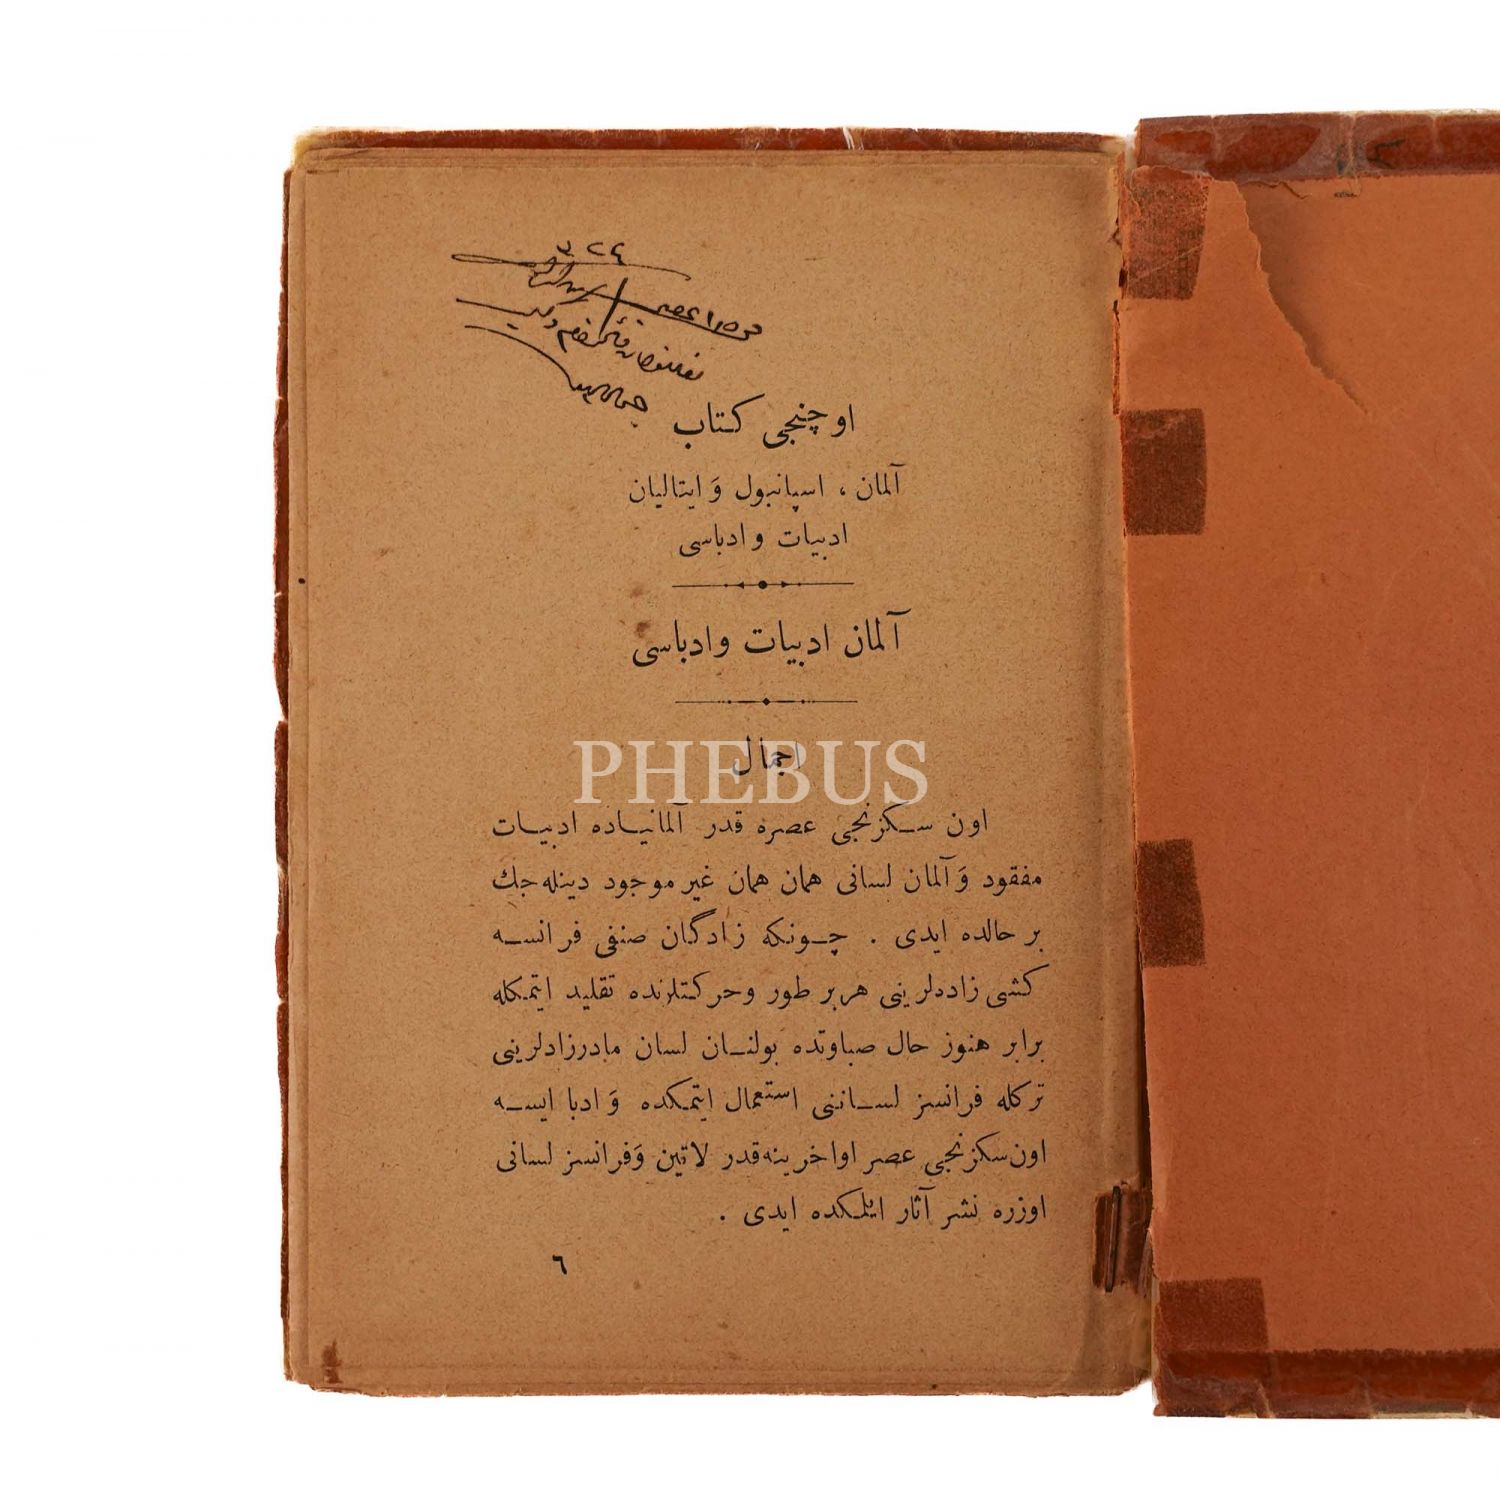 ٣٢٤
اوچنجی کتاب
آلمان ، اسپانیول وَ ایتالیان
ادبیات و ادباسی
آلمان ادبیات و ادباسی
اجمال
PHEBUS
اون سکزنجی عصره قدر آلمانیاده ادبیات
مفقود وَ آلمان لسانی همان همان غیر موجود دینله جك
بر حالده ایدی . چونکه زادگان صنفی فرانسه
کشی زاده‌لرینی هر بر طور و حرکتلرنده تقلید ایتمکله
برابر هنوز حال صباوتده بولنان لسان مادرزادلرینی
ترکله فرانسز لساننی استعمال ایتمکده وَ ادبا ایسه
اون سکزنجی عصر اواخرینه قدر لاتین وَ فرانسز لسانی
اوزره نشر آثار ایلمکده ایدی .
٦